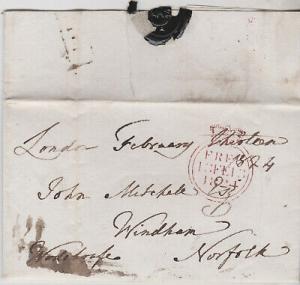 London February thirteen
1824
FREE
13 FE 13
1824
John Mitchell Esq
Windham
Norfolk